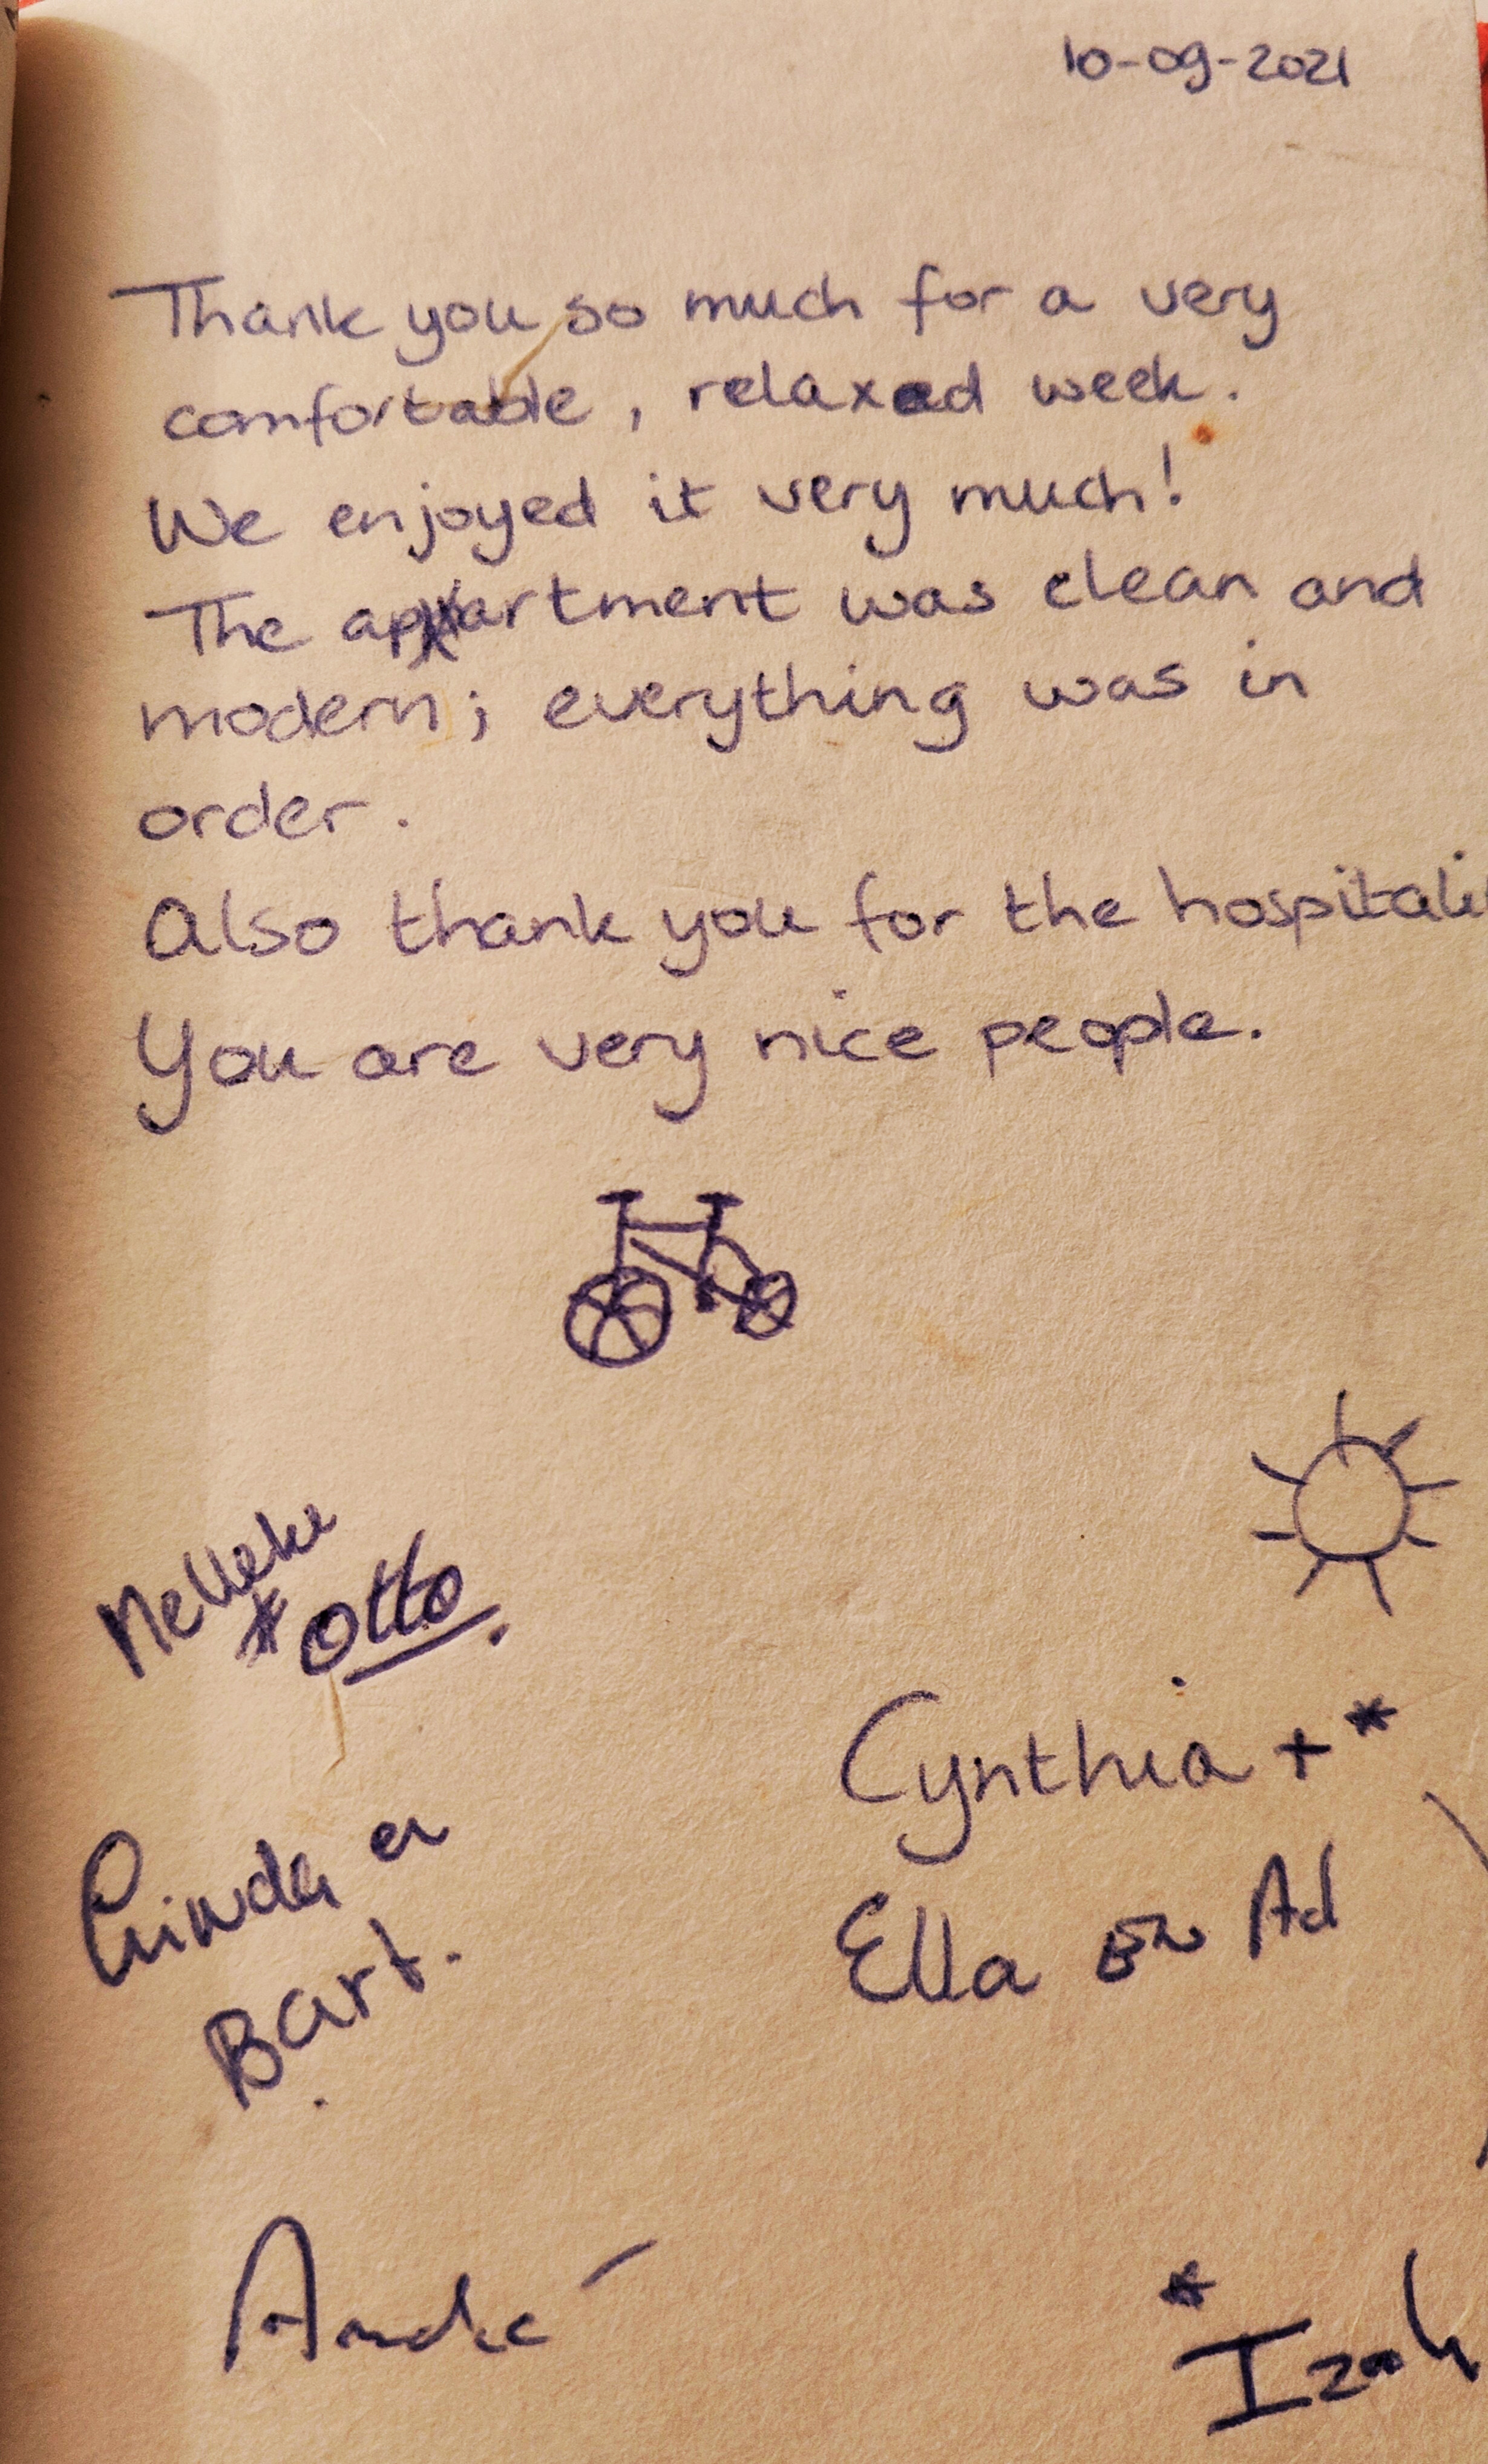 10-09-2021
Thank you so much for a very
comfortable, relaxed week.
We enjoyed it very much!
The apartment was clean and
modern; everything was in
order.
Also thank you for the hospitali
You are very nice people.
Otto.
Cynthia + *
en
Ella en Ad
Bart.
André
*